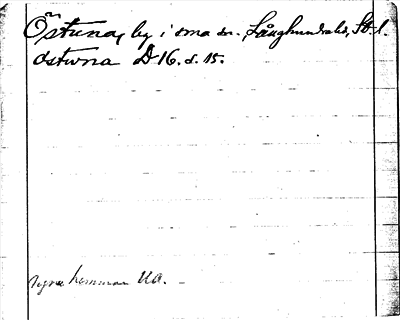 Östuna, by i sma sn. Långhundrahd, Sth l.
Ostwna D 16. s. 15.
hemman UO.